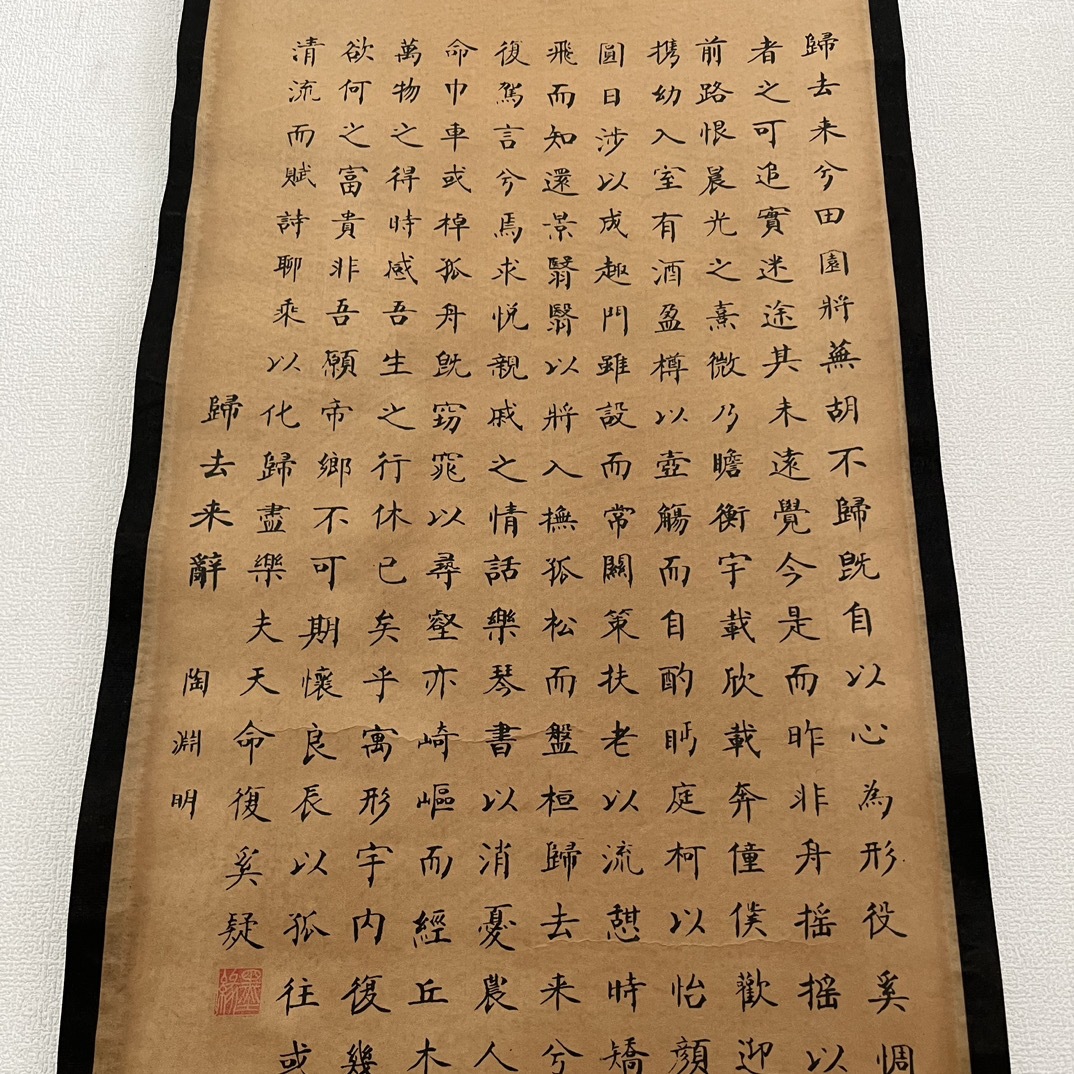 歸去来兮田園將蕪胡不歸既自以心為形役奚惆
者之可追實迷途其未遠覺今是而昨非舟摇摇以
前路恨晨光之熹微乃瞻衡宇載欣載奔僮僕歡迎
携幼入室有酒盈樽以壺觴而自酌眄庭柯以怡顔
圓日涉以成趣門雖設而常關策扶老以流憇時矯
飛而知還景翳翳以將入撫孤松而盤桓歸去来兮
復駕言兮焉求悦親戚之情話樂琴書以消憂農人
命巾車或棹孤舟既窈窕以尋壑亦崎嶇而經丘木
萬物之得時感吾生之行休已矣乎寓形宇内復幾
欲何之富貴非吾願帝鄉不可期懷良辰以孤往或
清流而賦詩聊乘以化歸盡樂夫天命復奚疑
歸去来辭 陶淵明